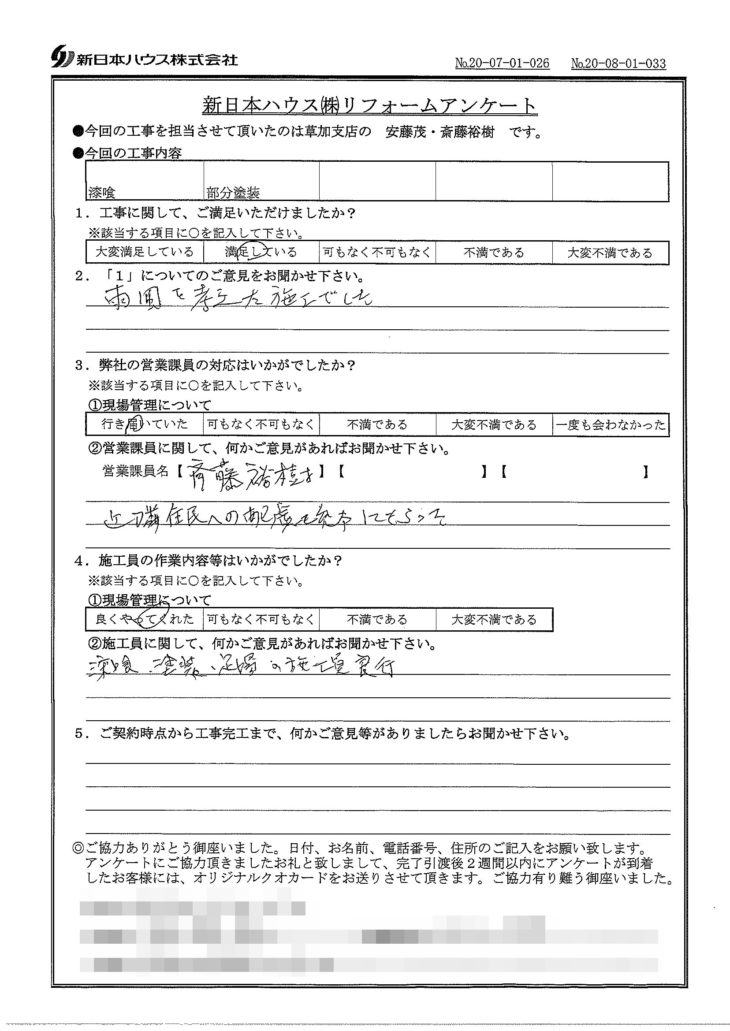 新日本ハウス株式会社
No.20-07-01-026 No.20-08-01-033
新日本ハウス㈱リフォームアンケート
●今回の工事を担当させて頂いたのは草加支店の 安藤茂・斎藤裕樹 です。
●今回の工事内容
漆喰 部分塗装
1．工事に関して、ご満足いただけましたか？
※該当する項目に○を記入して下さい。
大変満足している 満足している 可もなく不可もなく 不満である 大変不満である
2．「1」についてのご意見をお聞かせ下さい。
雨風を考えた施工でした
3．弊社の営業課員の対応はいかがでしたか？
※該当する項目に○を記入して下さい。
①現場管理について
行き届いていた 可もなく不可もなく 不満である 大変不満である 一度も会わなかった
②営業課員に関して、何かご意見があればお聞かせ下さい。
営業課員名【 斉藤裕樹 】【 】【 】
近隣住民への配慮も
4．施工員の作業内容等はいかがでしたか？
※該当する項目に○を記入して下さい。
①現場管理について
良くやってくれた 可もなく不可もなく 不満である 大変不満である
②施工員に関して、何かご意見があればお聞かせ下さい。
漆喰、塗装、足場の施工員良好
5．ご契約時点から工事完工まで、何かご意見等がありましたらお聞かせ下さい。
◎ご協力ありがとう御座いました。日付、お名前、電話番号、住所のご記入をお願い致します。
アンケートにご協力頂きましたお礼と致しまして、完了引渡後２週間以内にアンケートが到着
したお客様には、オリジナルクオカードをお送りさせて頂きます。ご協力有り難う御座いました。